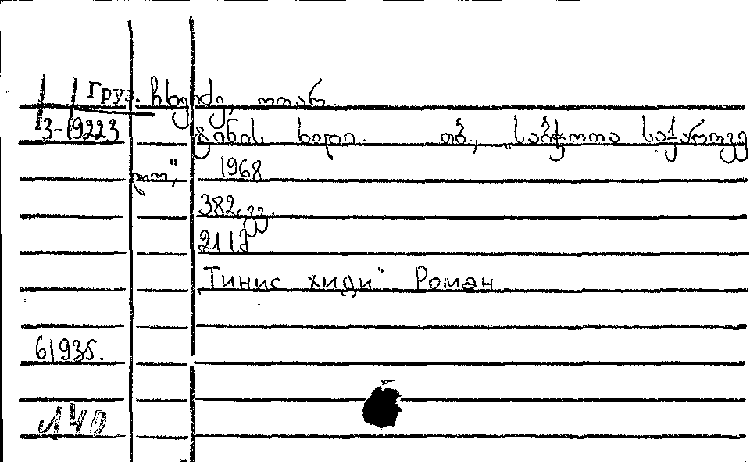 Груз. ჩხეიძე, ოთარ.
3-19223 ტინის ხიდი. თბ., „საბჭოთა საქართვე
ლო“, 1968
382 გვ.
21 სმ
"Тинис хиди" Роман
61935.